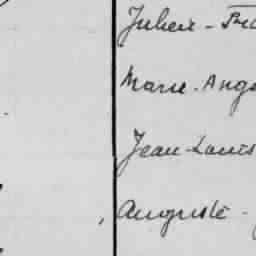 Julien - Fra
Marie - Ange
Jean Louis
Auguste -